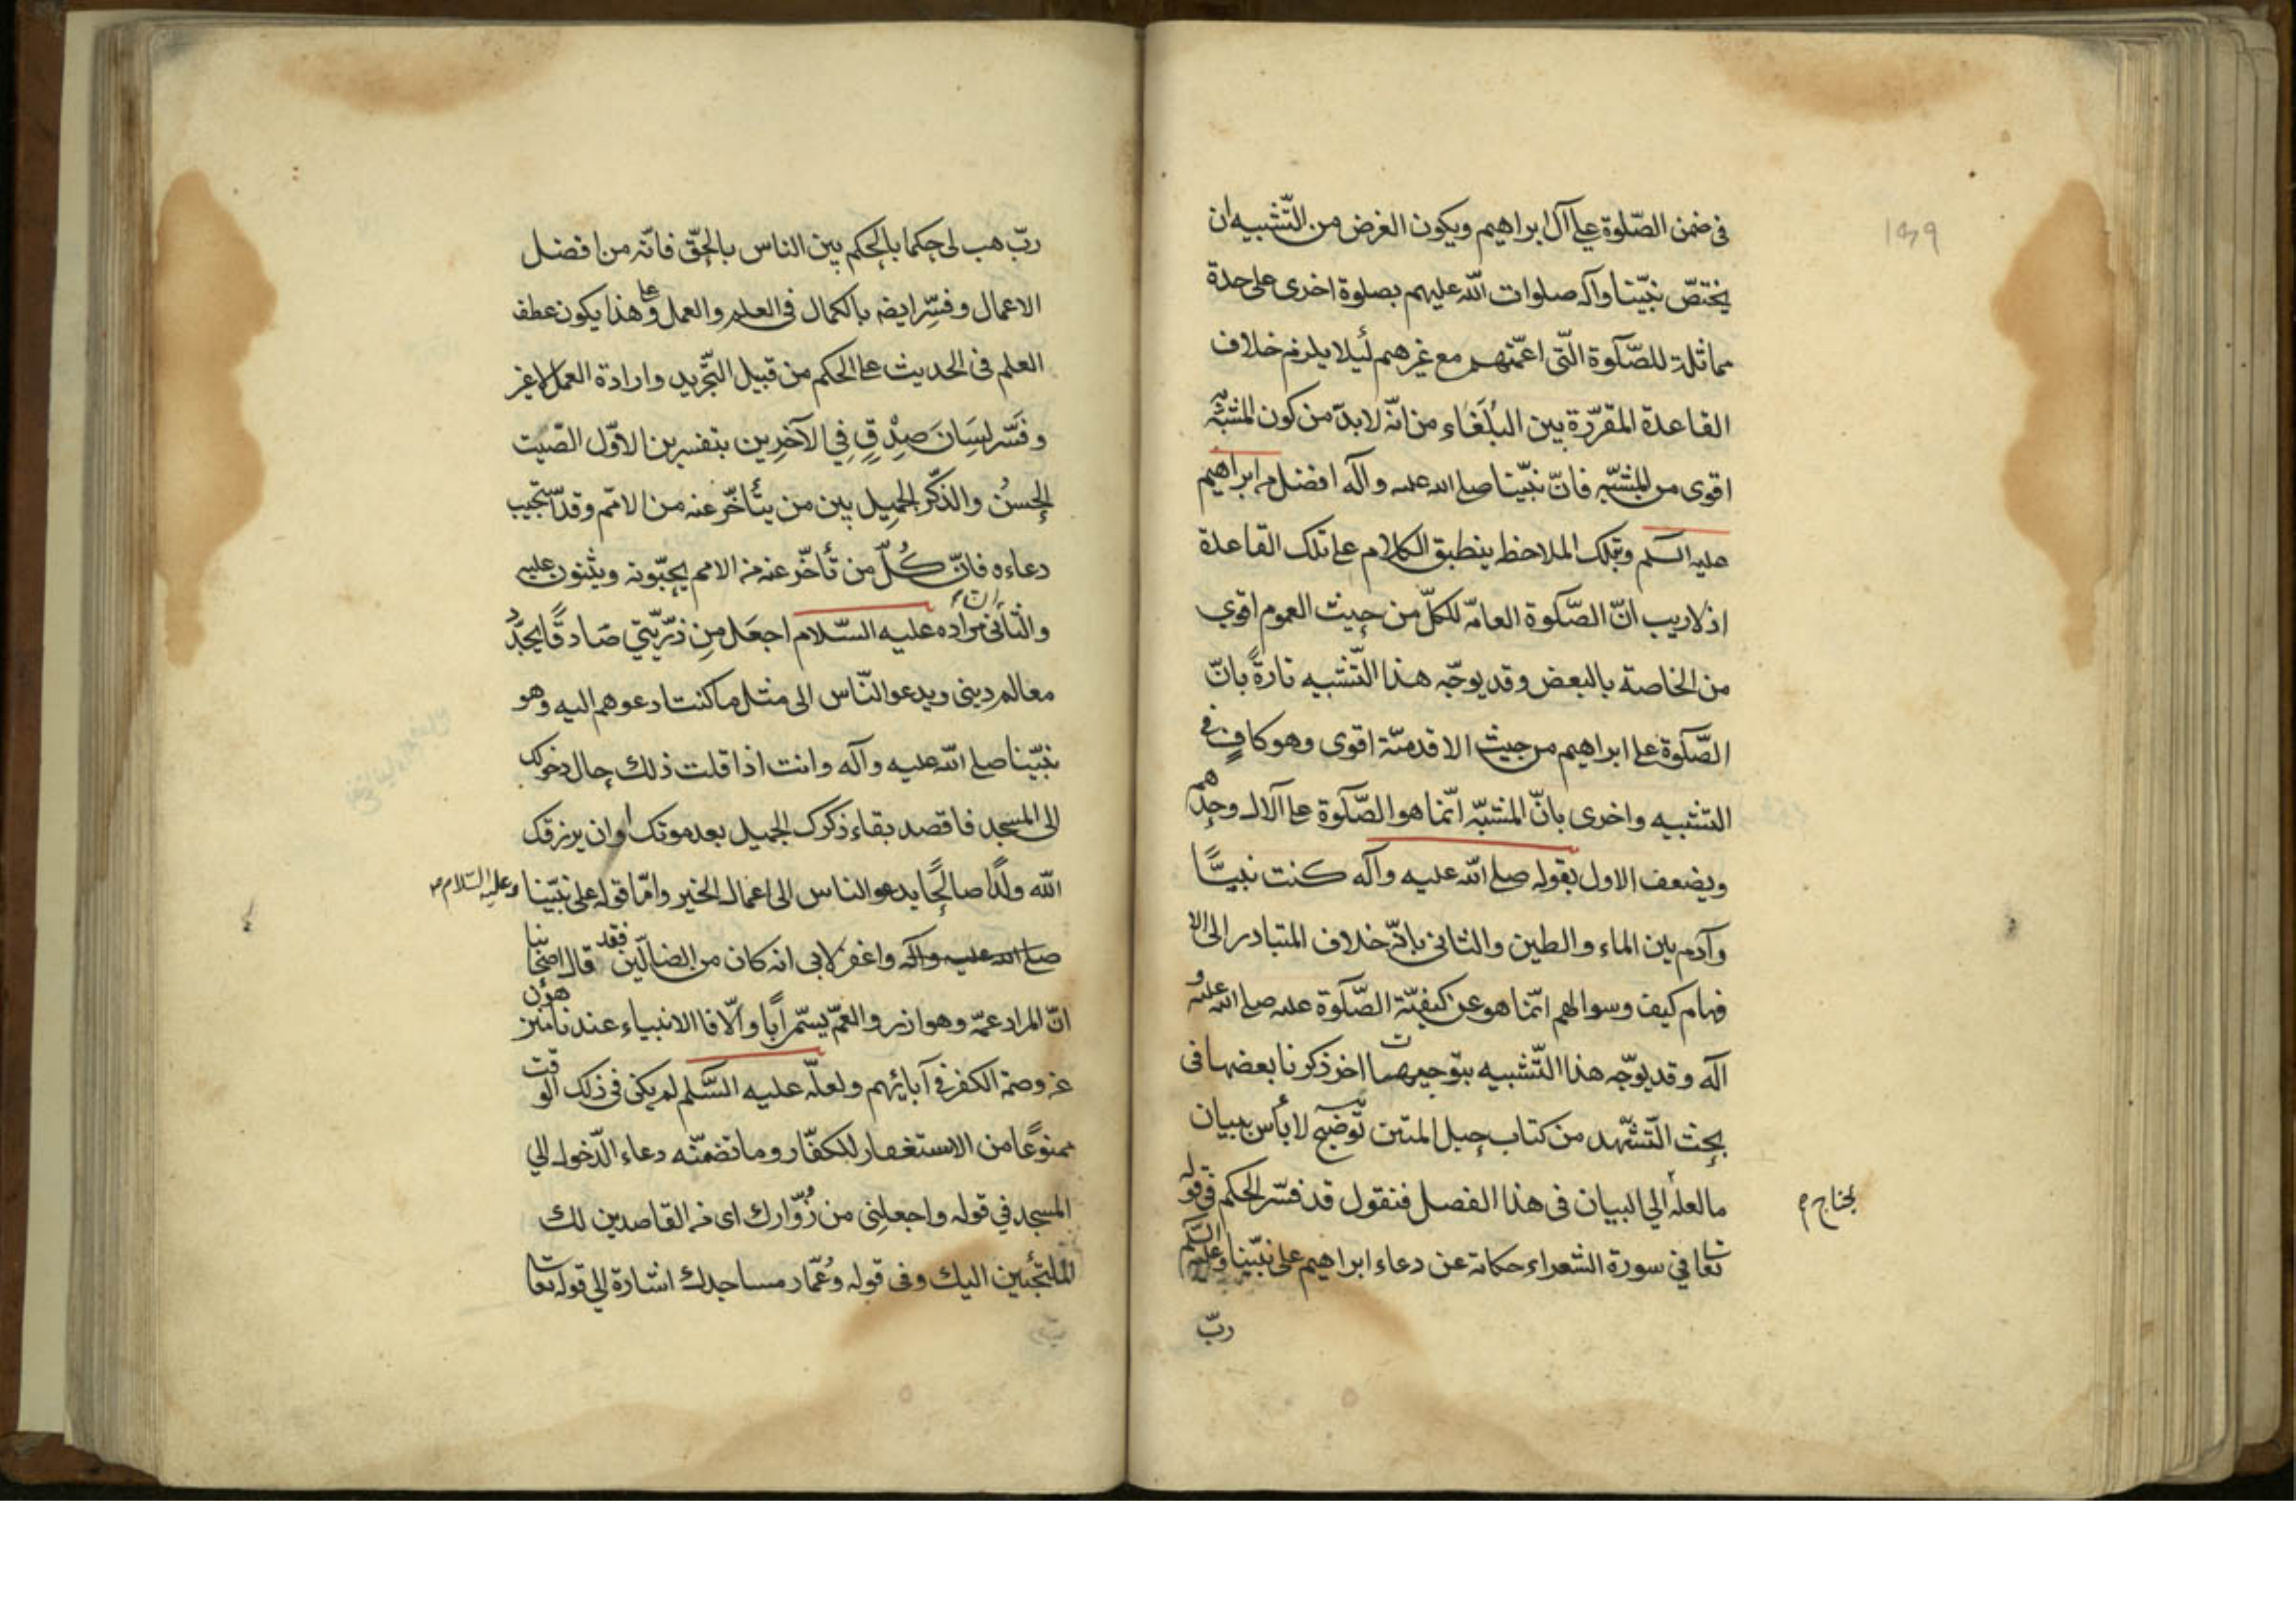 ١٣٩
فى ضمن الصّلوة على آل ابراهيم ويكون الغرض من التّشبيه ان
يختصّ نبيّنا وآله صلوات اللّه عليهم بصلوة اخرى على حدة
مماثلة للصّلوة الّتى اعمّتهم مع غيرهم لئلا يلزم خلاف
القاعدة المقرّرة بين البُلَغَاء من انّه لابدّ من كون المشبّه به
اقوى من المشبّه فانّ نبيّنا صلى الله عليه وآله افضل من ابراهيم
عليه السلم وبتلك الملاحظ ينطبق الكلام على تلك القاعدة
اذ لاريب انّ الصّلوة العامّه للكلّ من حيث العموم اقوى
من الخاصة بالبعض وقد يوجّه هذا التّشبيه تارةً بانّ
الصّلوة على ابراهيم من حيث الاقدميّة اقوى وهو كافٍ فى
التشبيه واخرى بانّ المشبّه انّما هو الصّلوة على الآل وحدهم
ويضعف الاول بقوله صلى اللّه عليه وآله كنت نبيًّا
وآدم بين الماء والطين والثانى بانّه خلاف المتبادر الى الا
فهام كيف وسوالهم انّما هو عن كيفيّة الصّلوة عليه صلى الله عليه و
آله وقد يوجّه هذا التّشبيه بتوجيهات اخر ذكرنا بعضها فى
بحث التّشهّد من كتاب حبل المتين توضيح لا بأس ببيان
ما لعله الى البيان فى هذا الفصل فنقول قد فسّر الحكم فى قوله
يحتاج م
تعا في سورة الشعراء حكاية عن دعاء ابراهيم على نبيّنا وعليه السّلم
ربّ
ربّ هب لى حكما بالحكم بين الناس بالحقّ فانّه من افضل
الاعمال وفسّر ايضا بالكمال فى العلم والعمل وعلى هذا يكون عطف
العلم فى الحديث على الحكم من قبيل التّجريد وارادة العمل لا غير
وفَسّر لسَانَ صِدْقٍ فِي الآخرِين بتفسيرين الاوّل الصّيت
الحسنُ والذّكر الجميل بين من يتأخّر عنه من الامّم وقد استجيب
دعاءه فانّ كُلّ من تأخّر عنه من الامم يحبّونه ويثنون عليه
والثّانى ان مراده عليه السّلام اجعَل مِن ذرّيّتي صَادقًا يجدّدُ
معالم دينى ويدعو النّاس الى مثل ما كنت ادعوهم اليه وهو
نبيّنا صلى اللّه عليه وآله وانت اذا قلت ذلك حال دخولك
الى المسجد فاقصد بقاء ذكرك الجميل بعد موتك او ان يرزقك
اللّه ولدًا صالحًا يدعو الناس الى اعمال الخير وامّا قوله على نبيّنا وعليه السّلام
صلى الله عليه وآله واغفر لابى انه كان من الضالّين فقد قال اصحابنا
انّ المراد عمّه وهو ازر والعمّ يسمّى اَبًا والّا فاالانبياء عندنا منزّهون
عن وصمة الكفر فى آبائهم ولعلّه عليه السَّلم لم يكن فى ذلك الوقت
ممنوعًا من الاستغفار للكفّار وما تضمّنه دعاء الدّخول الي
المسجد في قوله واجعلنِى من زُوّارك اى من القاصدين لك
الملتجئين اليك وفى قوله وعُمّار مساجدك اشارة الى قوله تعا